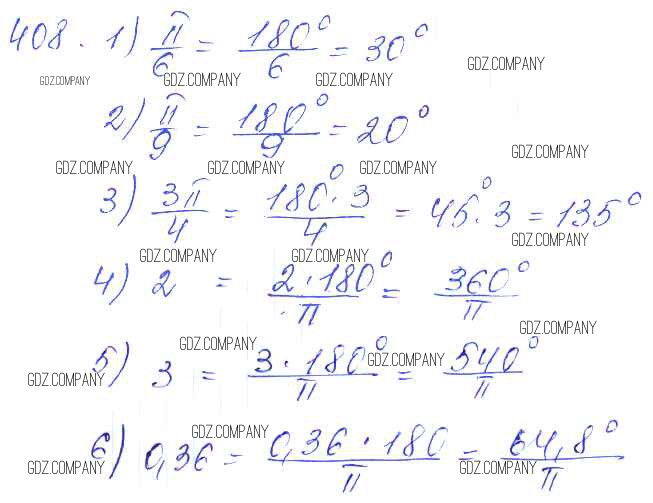 408. 1) π/6 = 180°/6 = 30°
GDZ.COMPANY GDZ.COMPANY GDZ.COMPANY GDZ.COMPANY
2) π/9 = 180°/9 = 20°
GDZ.COMPANY GDZ.COMPANY GDZ.COMPANY GDZ.COMPANY
3) 3π/4 = 180°·3/4 = 45°·3 = 135°
GDZ.COMPANY GDZ.COMPANY GDZ.COMPANY
4) 2 = 2·180°/π = 360°/π
GDZ.COMPANY GDZ.COMPANY
5) 3 = 3·180°/π = 540°/π
GDZ.COMPANY GDZ.COMPANY
6) 0,36 = 0,36·180/π = 64,8°/π
GDZ.COMPANY GDZ.COMPANY GDZ.COMPANY GDZ.COMPANY